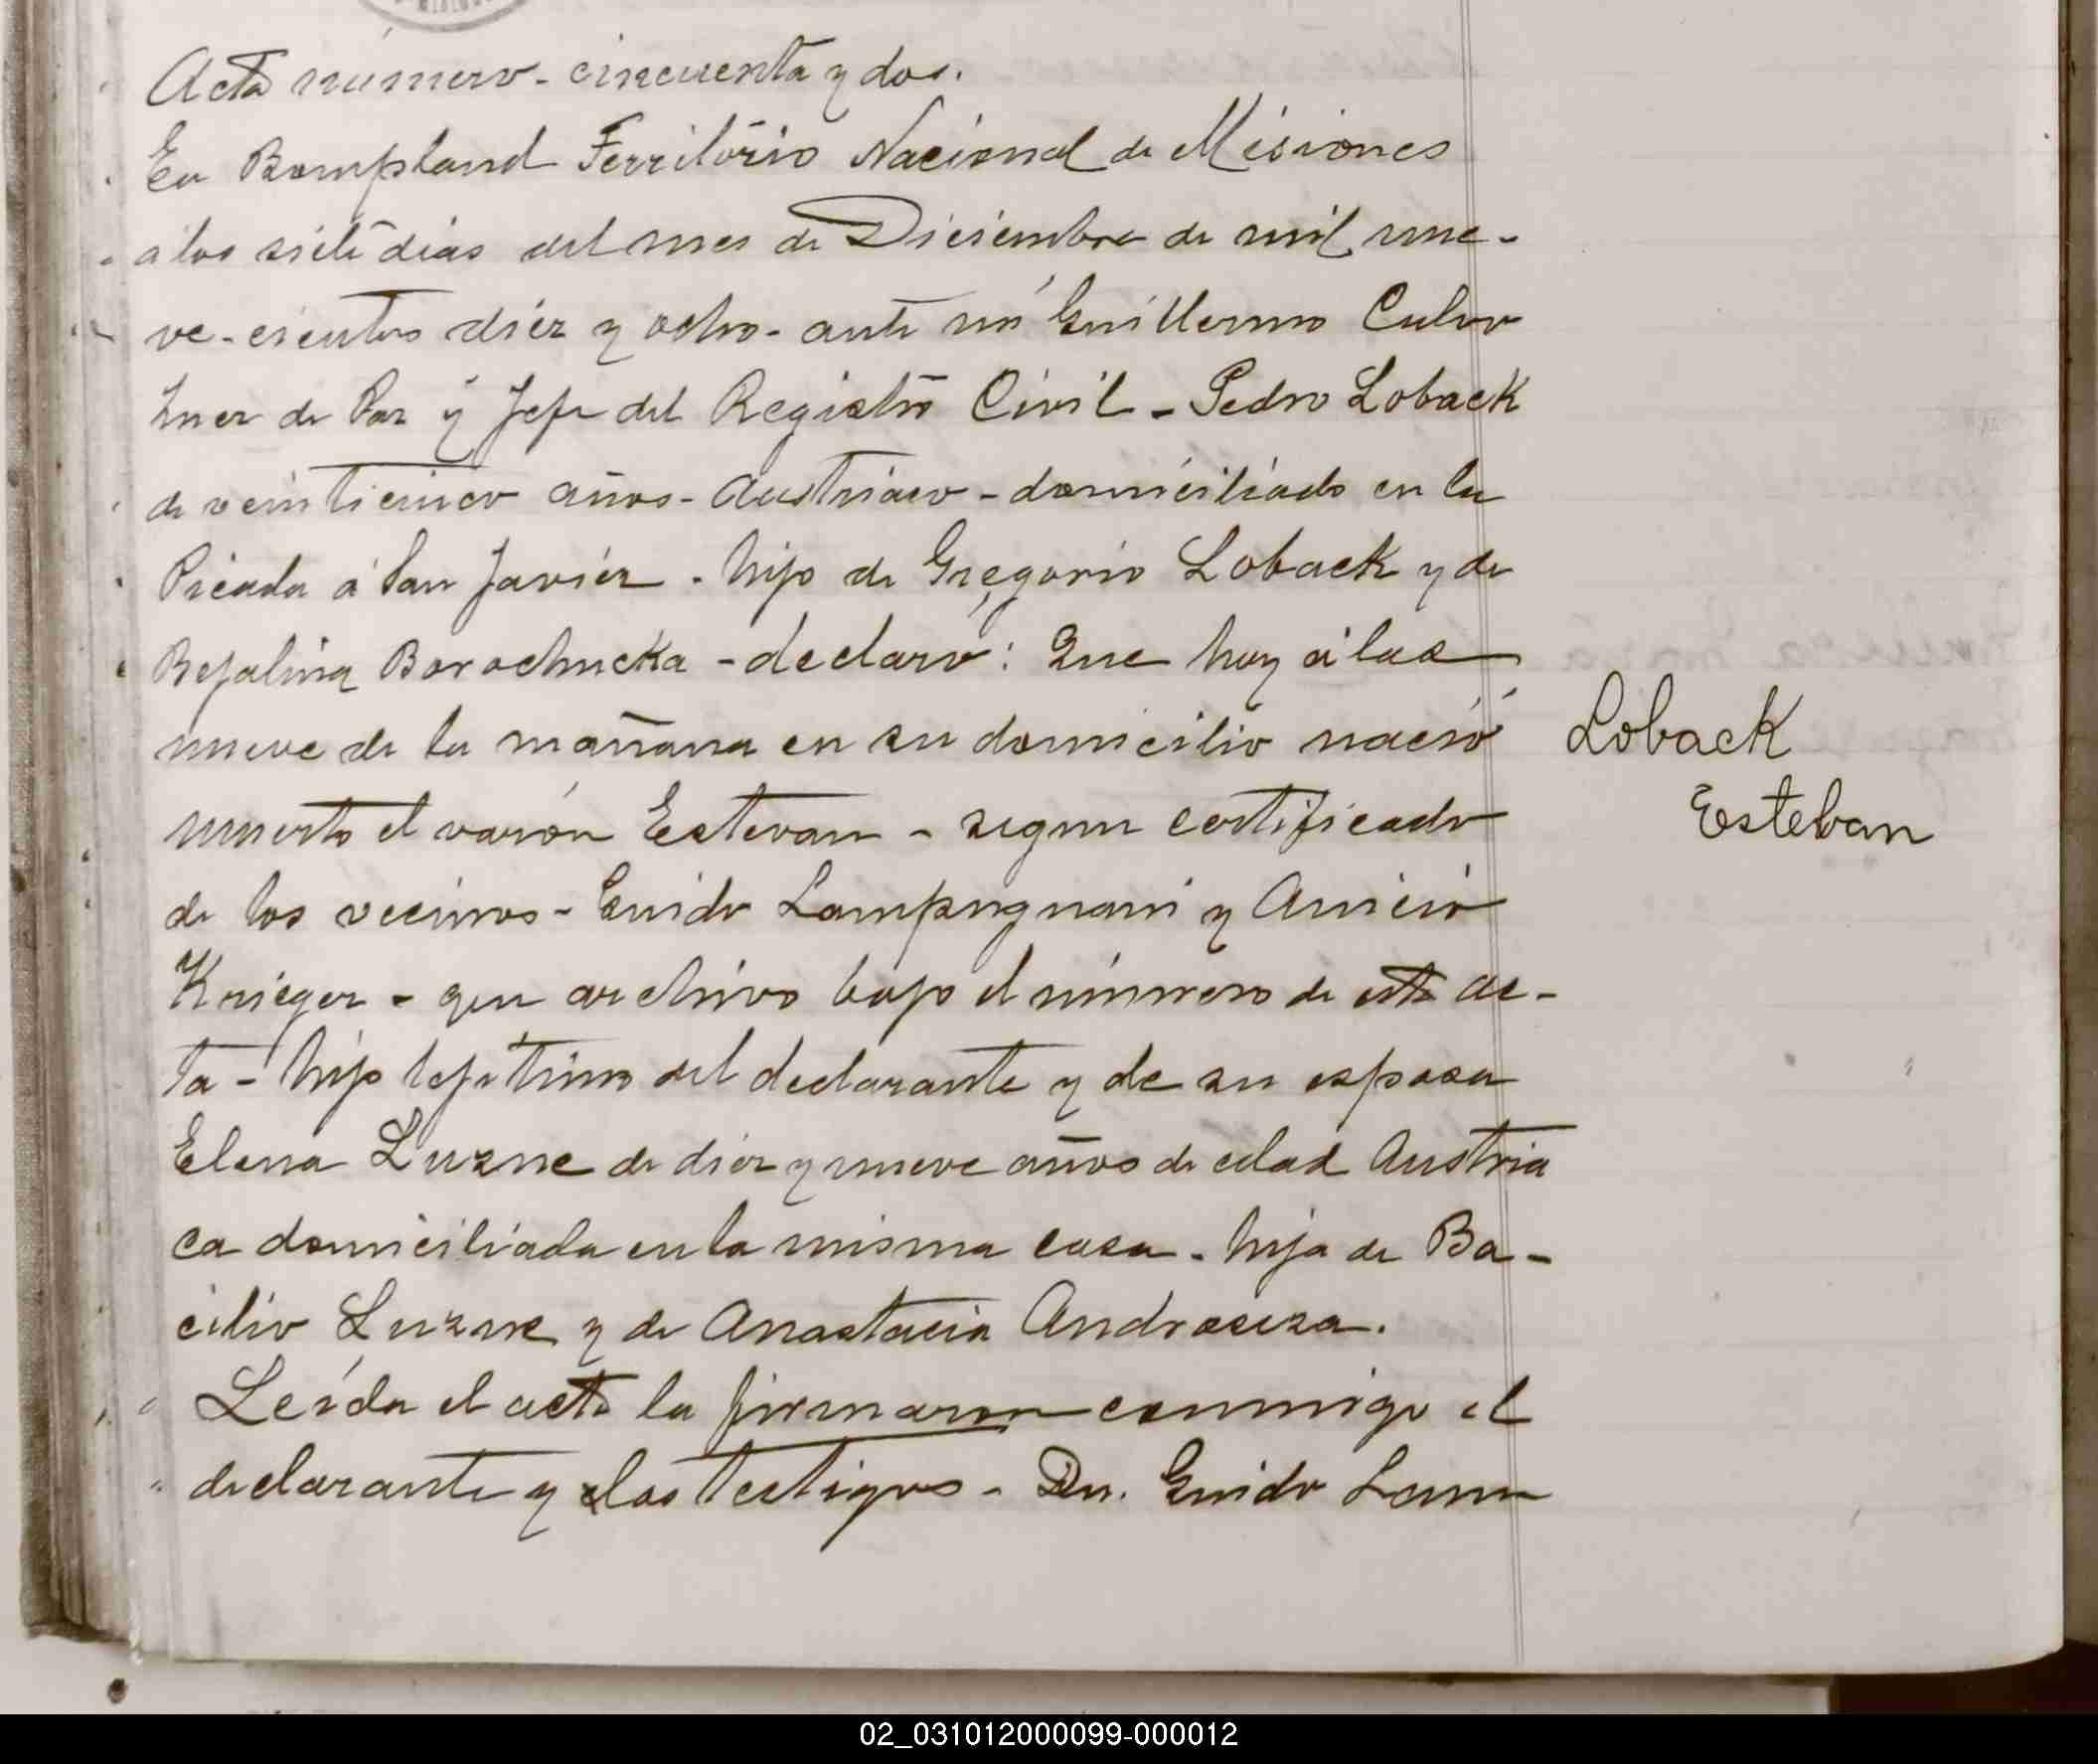 Acta número - cincuenta y dos.
En Bompland Territorio Nacional de Misiones
a los siete dias del mes de Diciembre de mil nue-
ve-cientos diez y ocho - ante mi Guillermo Culor
Juez de Paz y Jefe del Registro Civil - Pedro Loback
de veinticinco años - Austriaco - domiciliado en la
Picada á San Javier - hijo de Gregorio Loback y de
Borochucka - declaró: Que hoy á las
nueve de la mañana en su domicilio nació
muerto el varón Estevan - segun certificado
de los vecinos - Guido Lampugnani y Anicio
Krieger - que archivo bajo el número de esta ac-
ta - hijo lejitimo del declarante y de su esposa
Elena Luzne de diez y nueve años de edad Austria
ca domiciliada en la misma casa - hija de Ba-
cilio Luzne y de Anastacia Androseza.
Leída el acta la firmaron conmigo el
declarante y los testigos - Dn. Guido Lam
Loback
Esteban
02_031012000099-000012